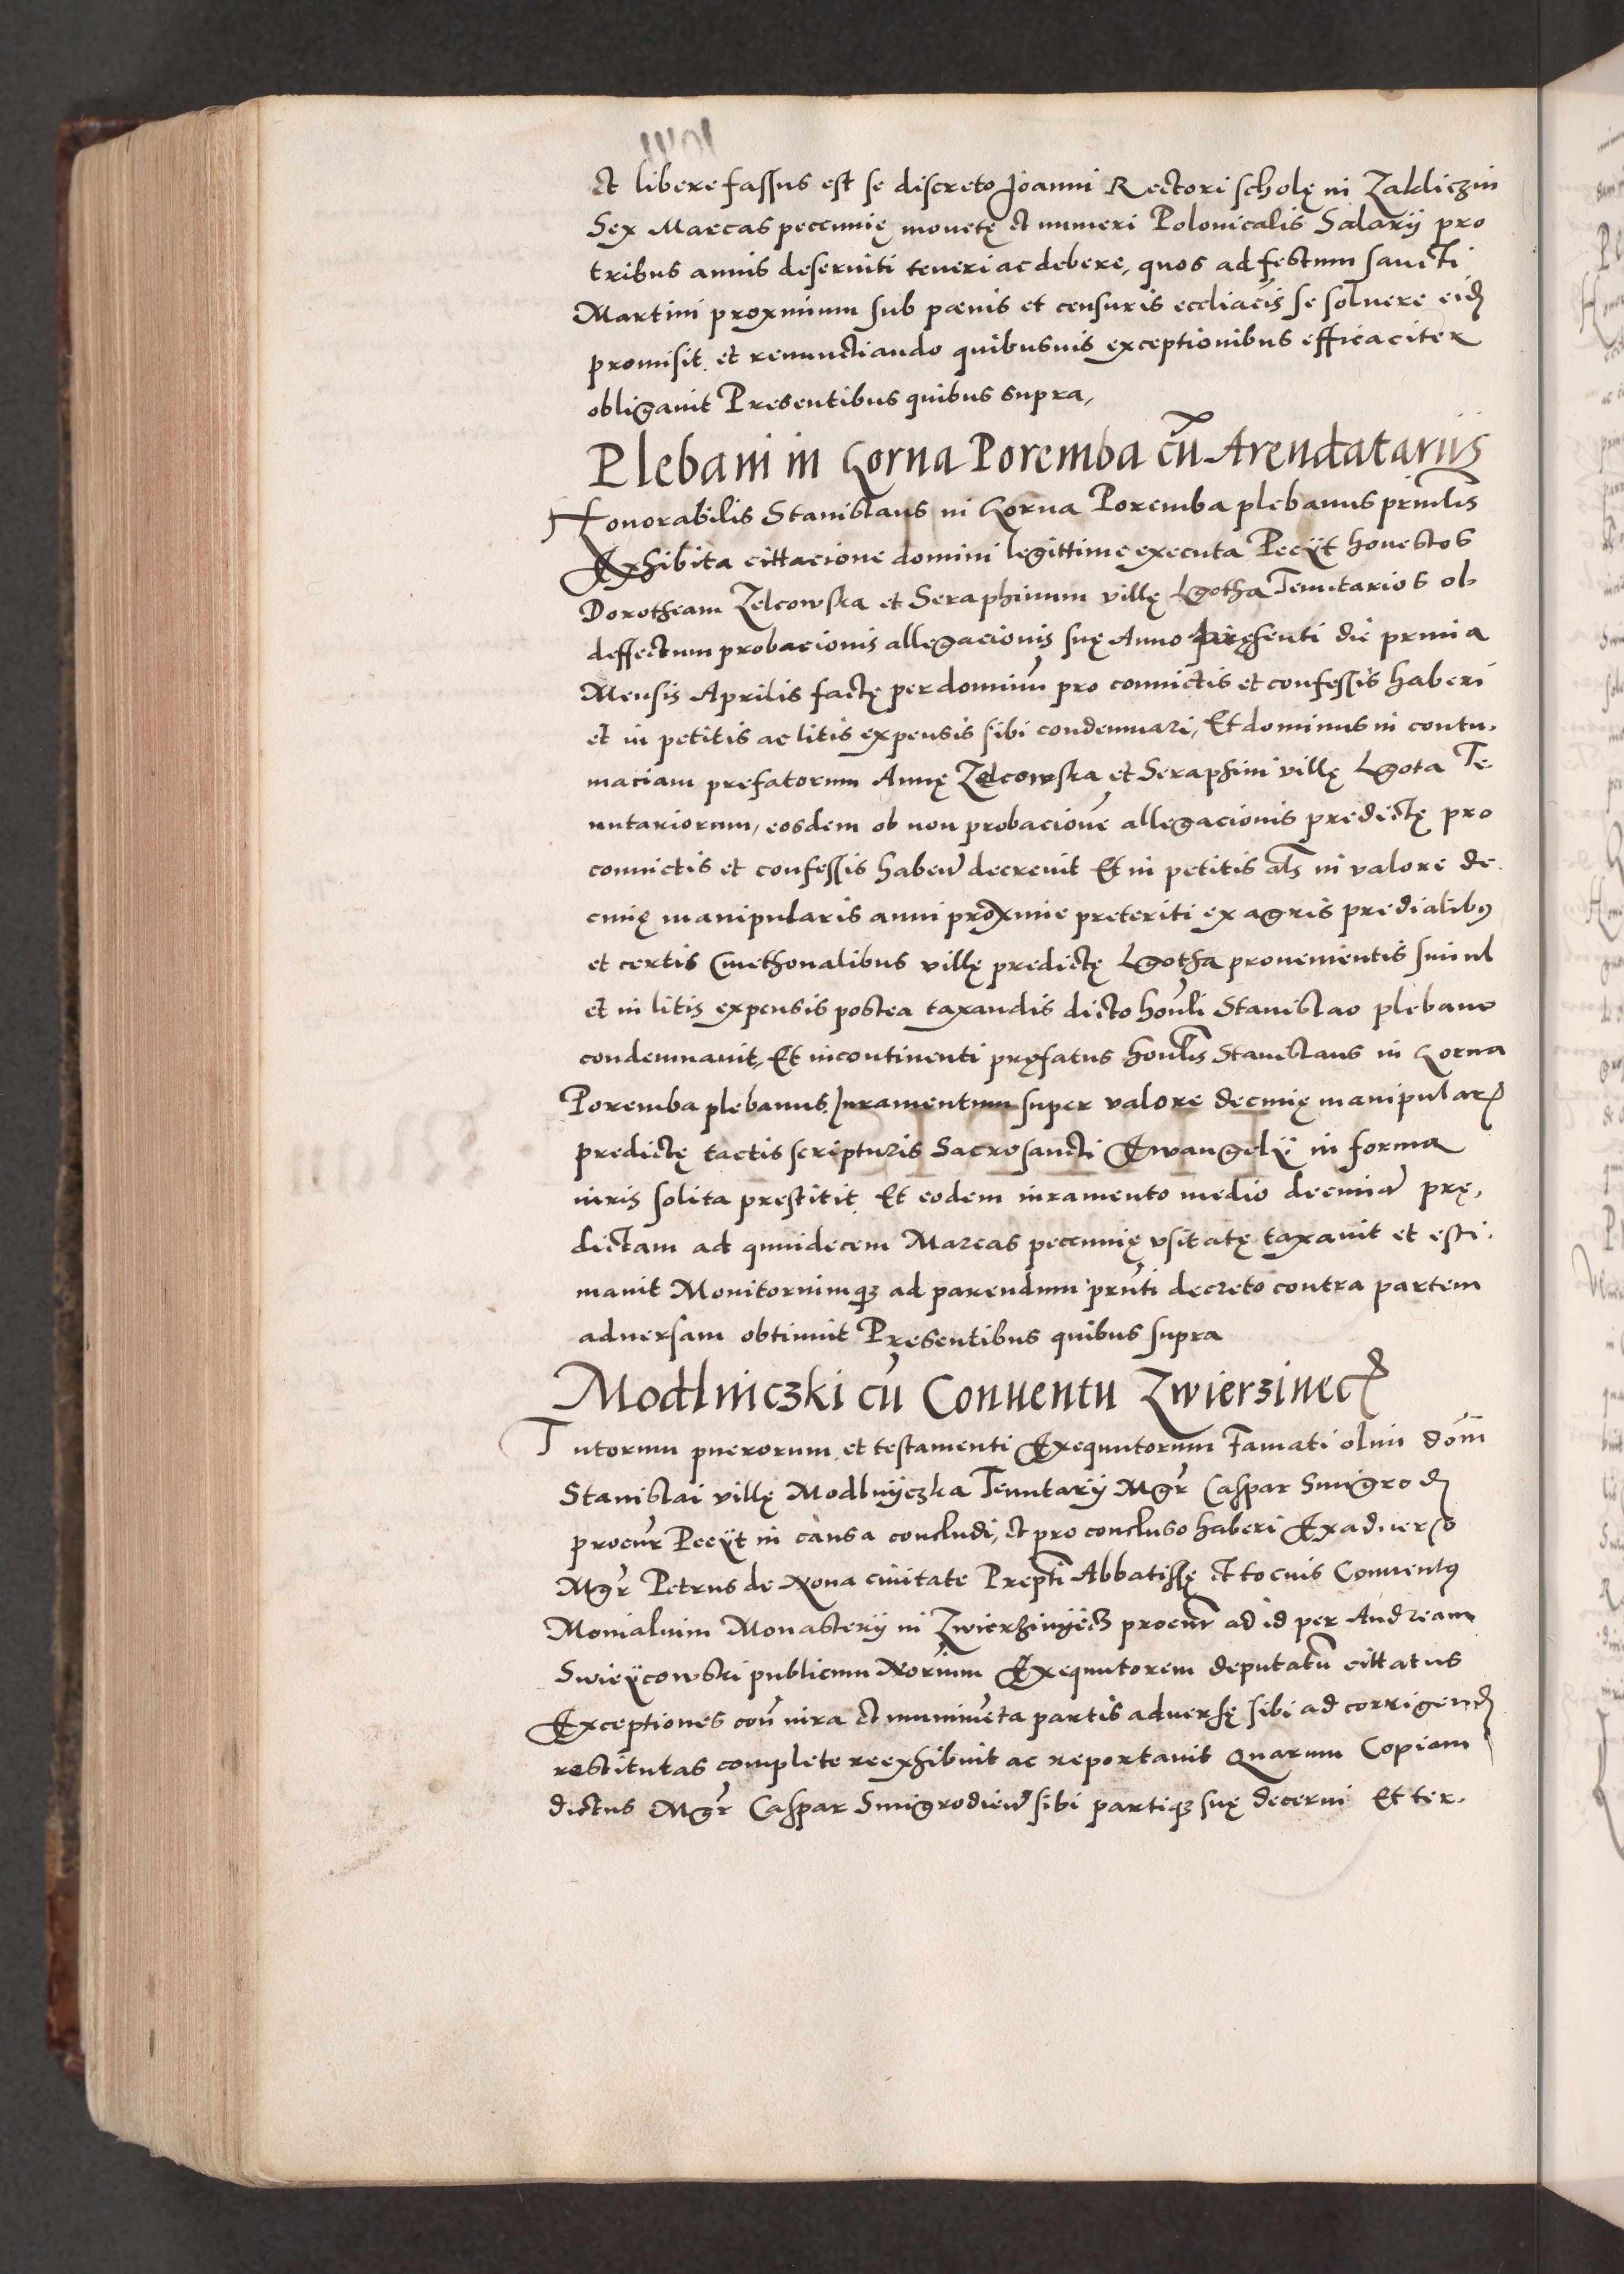 et libere fassus est se discreto Joanni Rectori scholę in Zakliczin
Sex Marcas peccunię monetę et numeri Polonicalis Salarii pro
tribus annis deserviti teneri ac debere, quos ad festum sancti
Martini proximum sub pœnis et censuris eccliacis se soluere eid
promisit, et renunctiando quibusuis exceptionibus efficaciter
obligauit Presentibus quibus supra,
Plebani in Gorna Poremba cū Arendatariis
Honorabilis Stanislaus in Gorna Poremba plebanus prinlis
Exhibita cittacione domini legittime executa Peciit honestos
Dorotheam Zelcowska et Seraphinum villę Lgotha Tenutarios ob
deffectum probacionis allegacionis suę Anno pręsenti die prima
Mensis Aprilis factę per dominū pro conuictis et confessis haberi
et in petitis ac litis expensis sibi condemnari, Et dominus in contu-
maciam prefatorum Annę Zelcowska et Seraphini villę Lgota Te-
nutariorum, eosdem ob non probacionē allegacionis predictę pro
conuictis et confessis habeñ decreuit Et in petitis als in valore de-
cimę manipularis anni proxime preteriti ex agris predialibꝰ
et certis Cmethonalibus villę predictę Lgotha prouenientis simul
et in litis expensis postea taxandis dicto honli Stanislao plebano
condemnauit, Et incontinenti pręfatus honlis Stanislaus in Gorna
Poremba plebanus Juramentum super valore decimę manipular
predictę tactis scripturis Sacrosancti Ewangelii in forma
iuris solita prestitit, Et eodem iuramento medio decimā prę-
dictam ad quindecem Marcas peccunię vsitatę taxauit et esti-
mauit Monitoriumqȝ ad parendum prnti decreto contra partem
aduersam obtinuit Presentibus quibus supra
Modlniczki cū Conuentu Zwierzinec
Tutorum puerorum et testamenti Exequutorum Famati olim dom̄
Stanislai villę Modlnyczka Tenutarii Mgr Caspar Smigrod
procur Peciit in causa concludi, et pro concluso haberi Exaduerso
Mgr Petrus de Noua ciuitate Prepti Abbatissę et tocius Conuentꝰ
Monialium Monasterii in Zwierziniecz procur ad id per Andream
Swieycowski publicum Norium Exequutorem deputatū cittatus
Exceptiones con iura et munimēta partis aduersę sibi ad corrigend
restitutas complete reexhibuit ac reportauit Quarum Copiam
dictus Mgr Caspar Smigrodieñ sibi partiqȝ suę decerni Et ter-